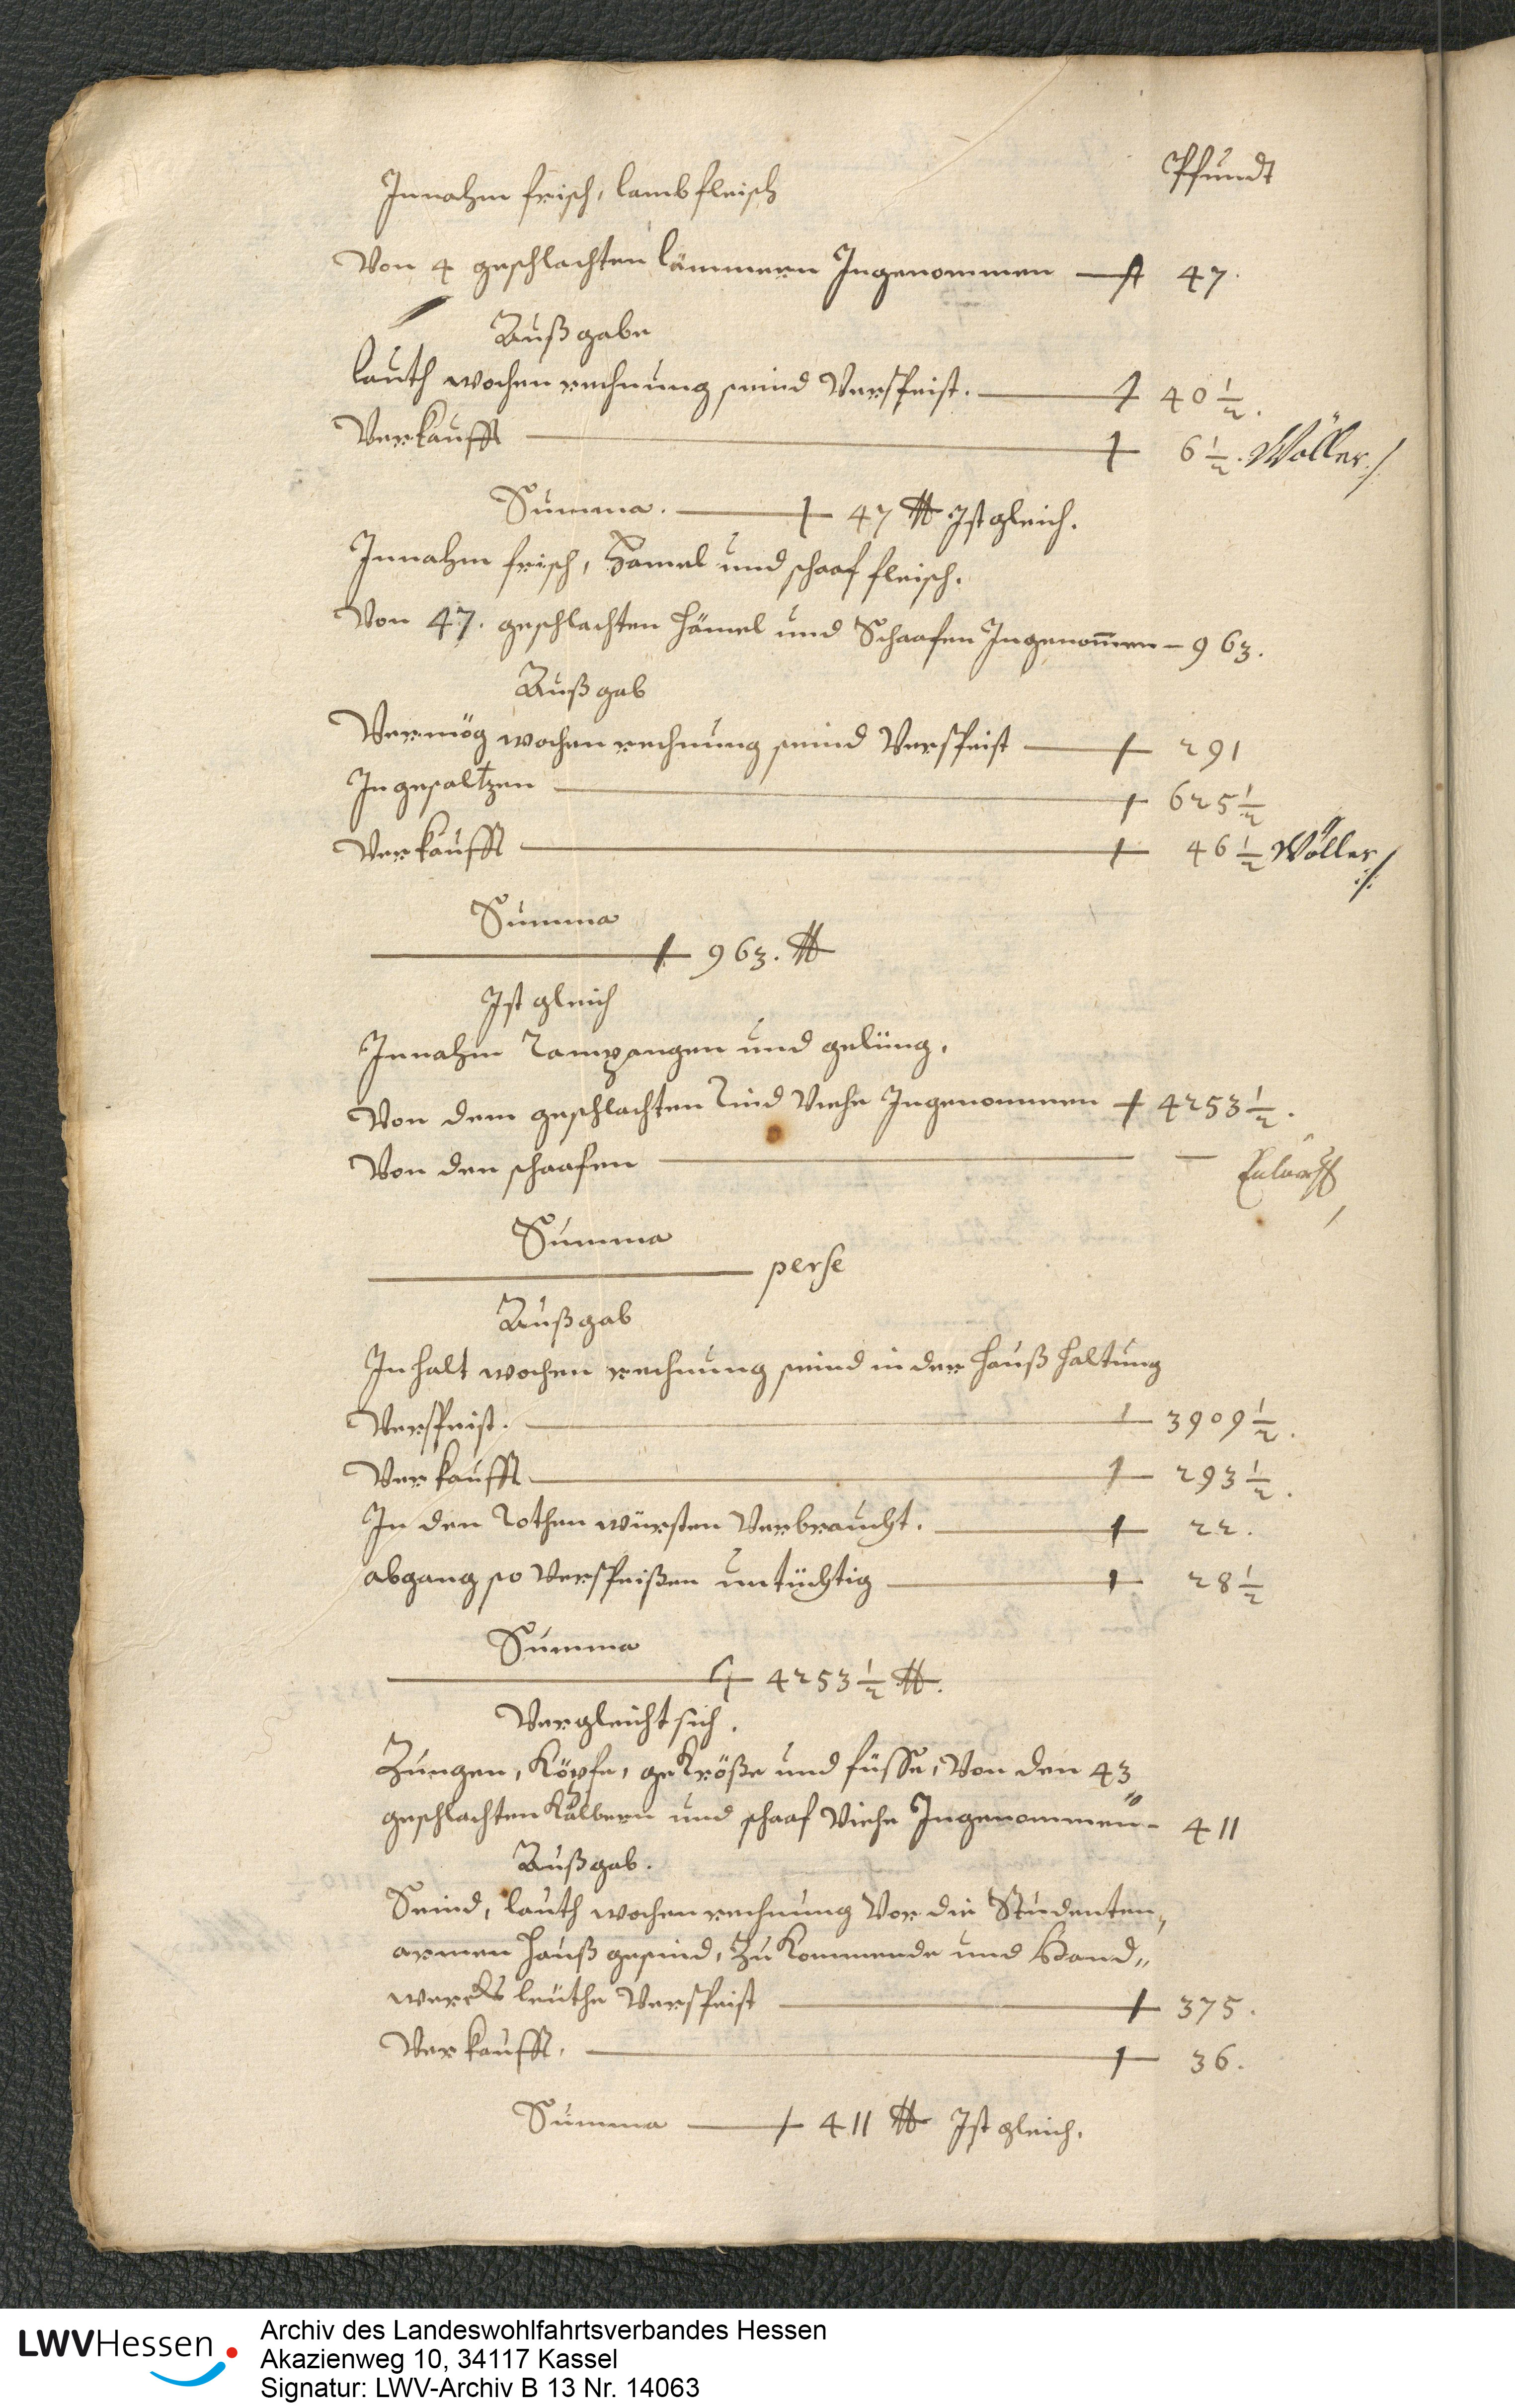 Pfundt
Innahm frisch, lambfleisch
Von 4 geschlachten Lämmern Ingenommen 47.
Außgabe
Lauth wochenrechnung seind Verspeist. 40 1/2.
Verkaufft 6 1/2. Wöller
Summa. 47 ℔ Ist gleich.
Innahm frisch, Hamel und schaaf fleisch.
Von 47. geschlachten Hämel und Schaafen Ingenom̄en - 963.
Außgab
Vermög wochenrechnung seind Verspeist 291
Ingesaltzen 625 1/2
Verkaufft 46 1/2 Wöller
Summa
963. ℔
Ist gleich
Innahm und gelüng.
Von dem geschlachten Rind Viehe Ingenommen 4253 1/2.
Von den schaafen —
Summa
perse
Außgab
Inhalt wochen rechnung seind in der Haußhaltung
Verspeist. 3909 1/2.
Verkaufft 293 1/2.
In den Rothen würsten Verbraucht. 22.
abgang so Verspeißen untüchtig 28 1/2
Summa
4253 1/2 ℔.
Vergleicht sich.
Zungen, Köpfe, geKröße und füsse, Von den 43
geschlachten Kälbern und schaaf Viehe Ingenommen - 411
Außgab.
Seind, lauth wochenrechnung Vor die Studenten,
armen Haußgesind, ZuKommende und Hand„
wercks leuthe Verspeist 375.
Verkaufft. 36.
Summa 411 ℔ Ist gleich.
LWVHessen
Archiv des Landeswohlfahrtsverbandes Hessen
Akazienweg 10, 34117 Kassel
Signatur: LWV-Archiv B 13 Nr. 14063